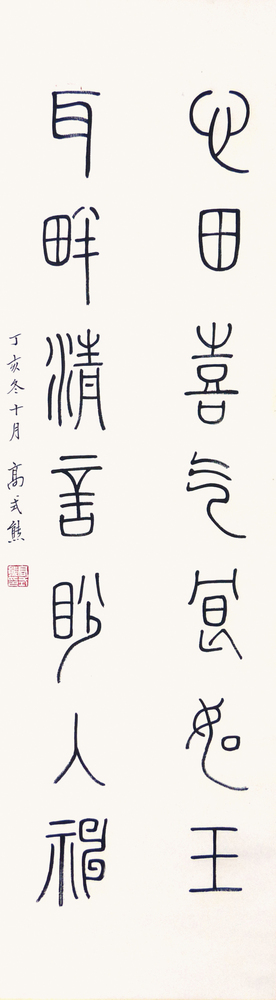 心田喜气良如玉
耳畔清言眇入神
丁亥冬十月 高式熊